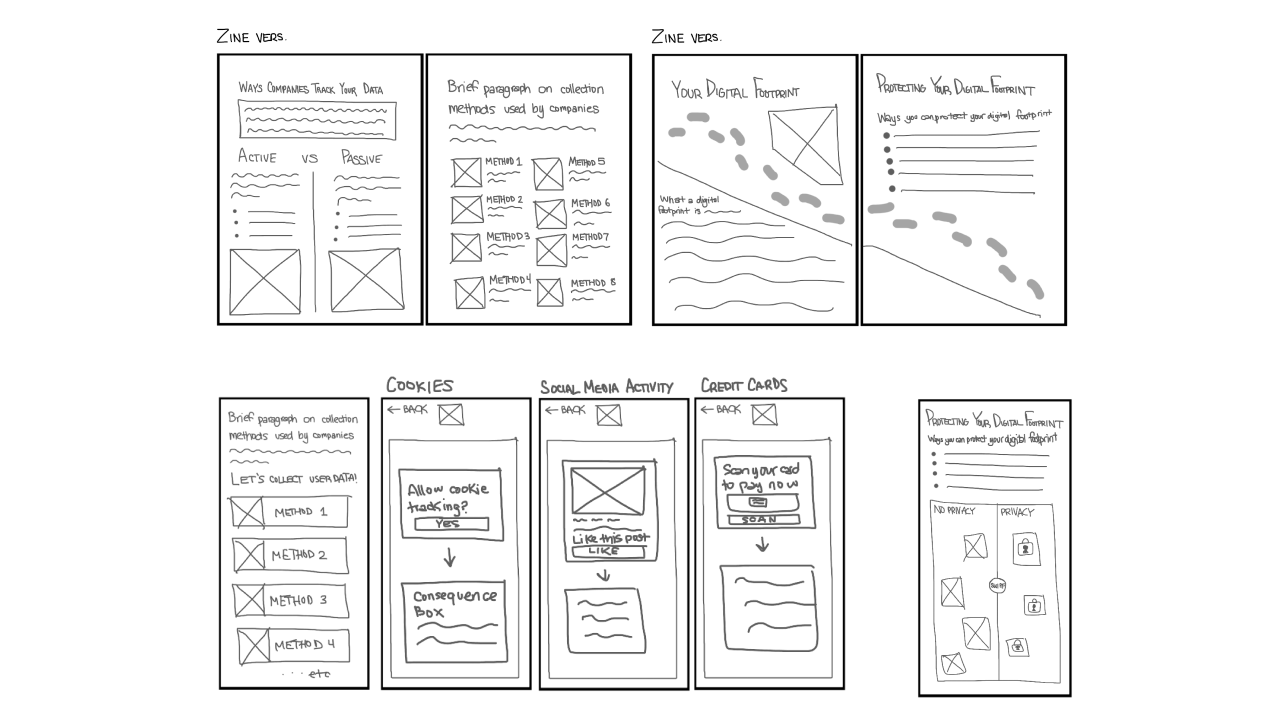 ZINE VERS.
WAYS COMPANIES TRACK YOUR DATA
ACTIVE VS PASSIVE
Brief paragraph on collection
methods used by companies
METHOD 1
METHOD 2
METHOD 3
METHOD 4
METHOD 5
METHOD 6
METHOD 7
METHOD 8
ZINE VERS.
YOUR DIGITAL FOOTPRINT
What a digital
footprint is
PROTECTING YOUR DIGITAL FOOTPRINT
Ways you can protect your digital footprint
Brief paragraph on collection
methods used by companies
LET'S COLLECT USER DATA!
METHOD 1
METHOD 2
METHOD 3
METHOD 4
... etc
COOKIES
← BACK
Allow cookie
tracking?
YES
Consequence
Box
SOCIAL MEDIA ACTIVITY
← BACK
Like this post
LIKE
CREDIT CARDS
← BACK
Scan your card
to pay now
SCAN
PROTECTING YOUR DIGITAL FOOTPRINT
Ways you can protect your digital footprint
NO PRIVACY
PRIVACY